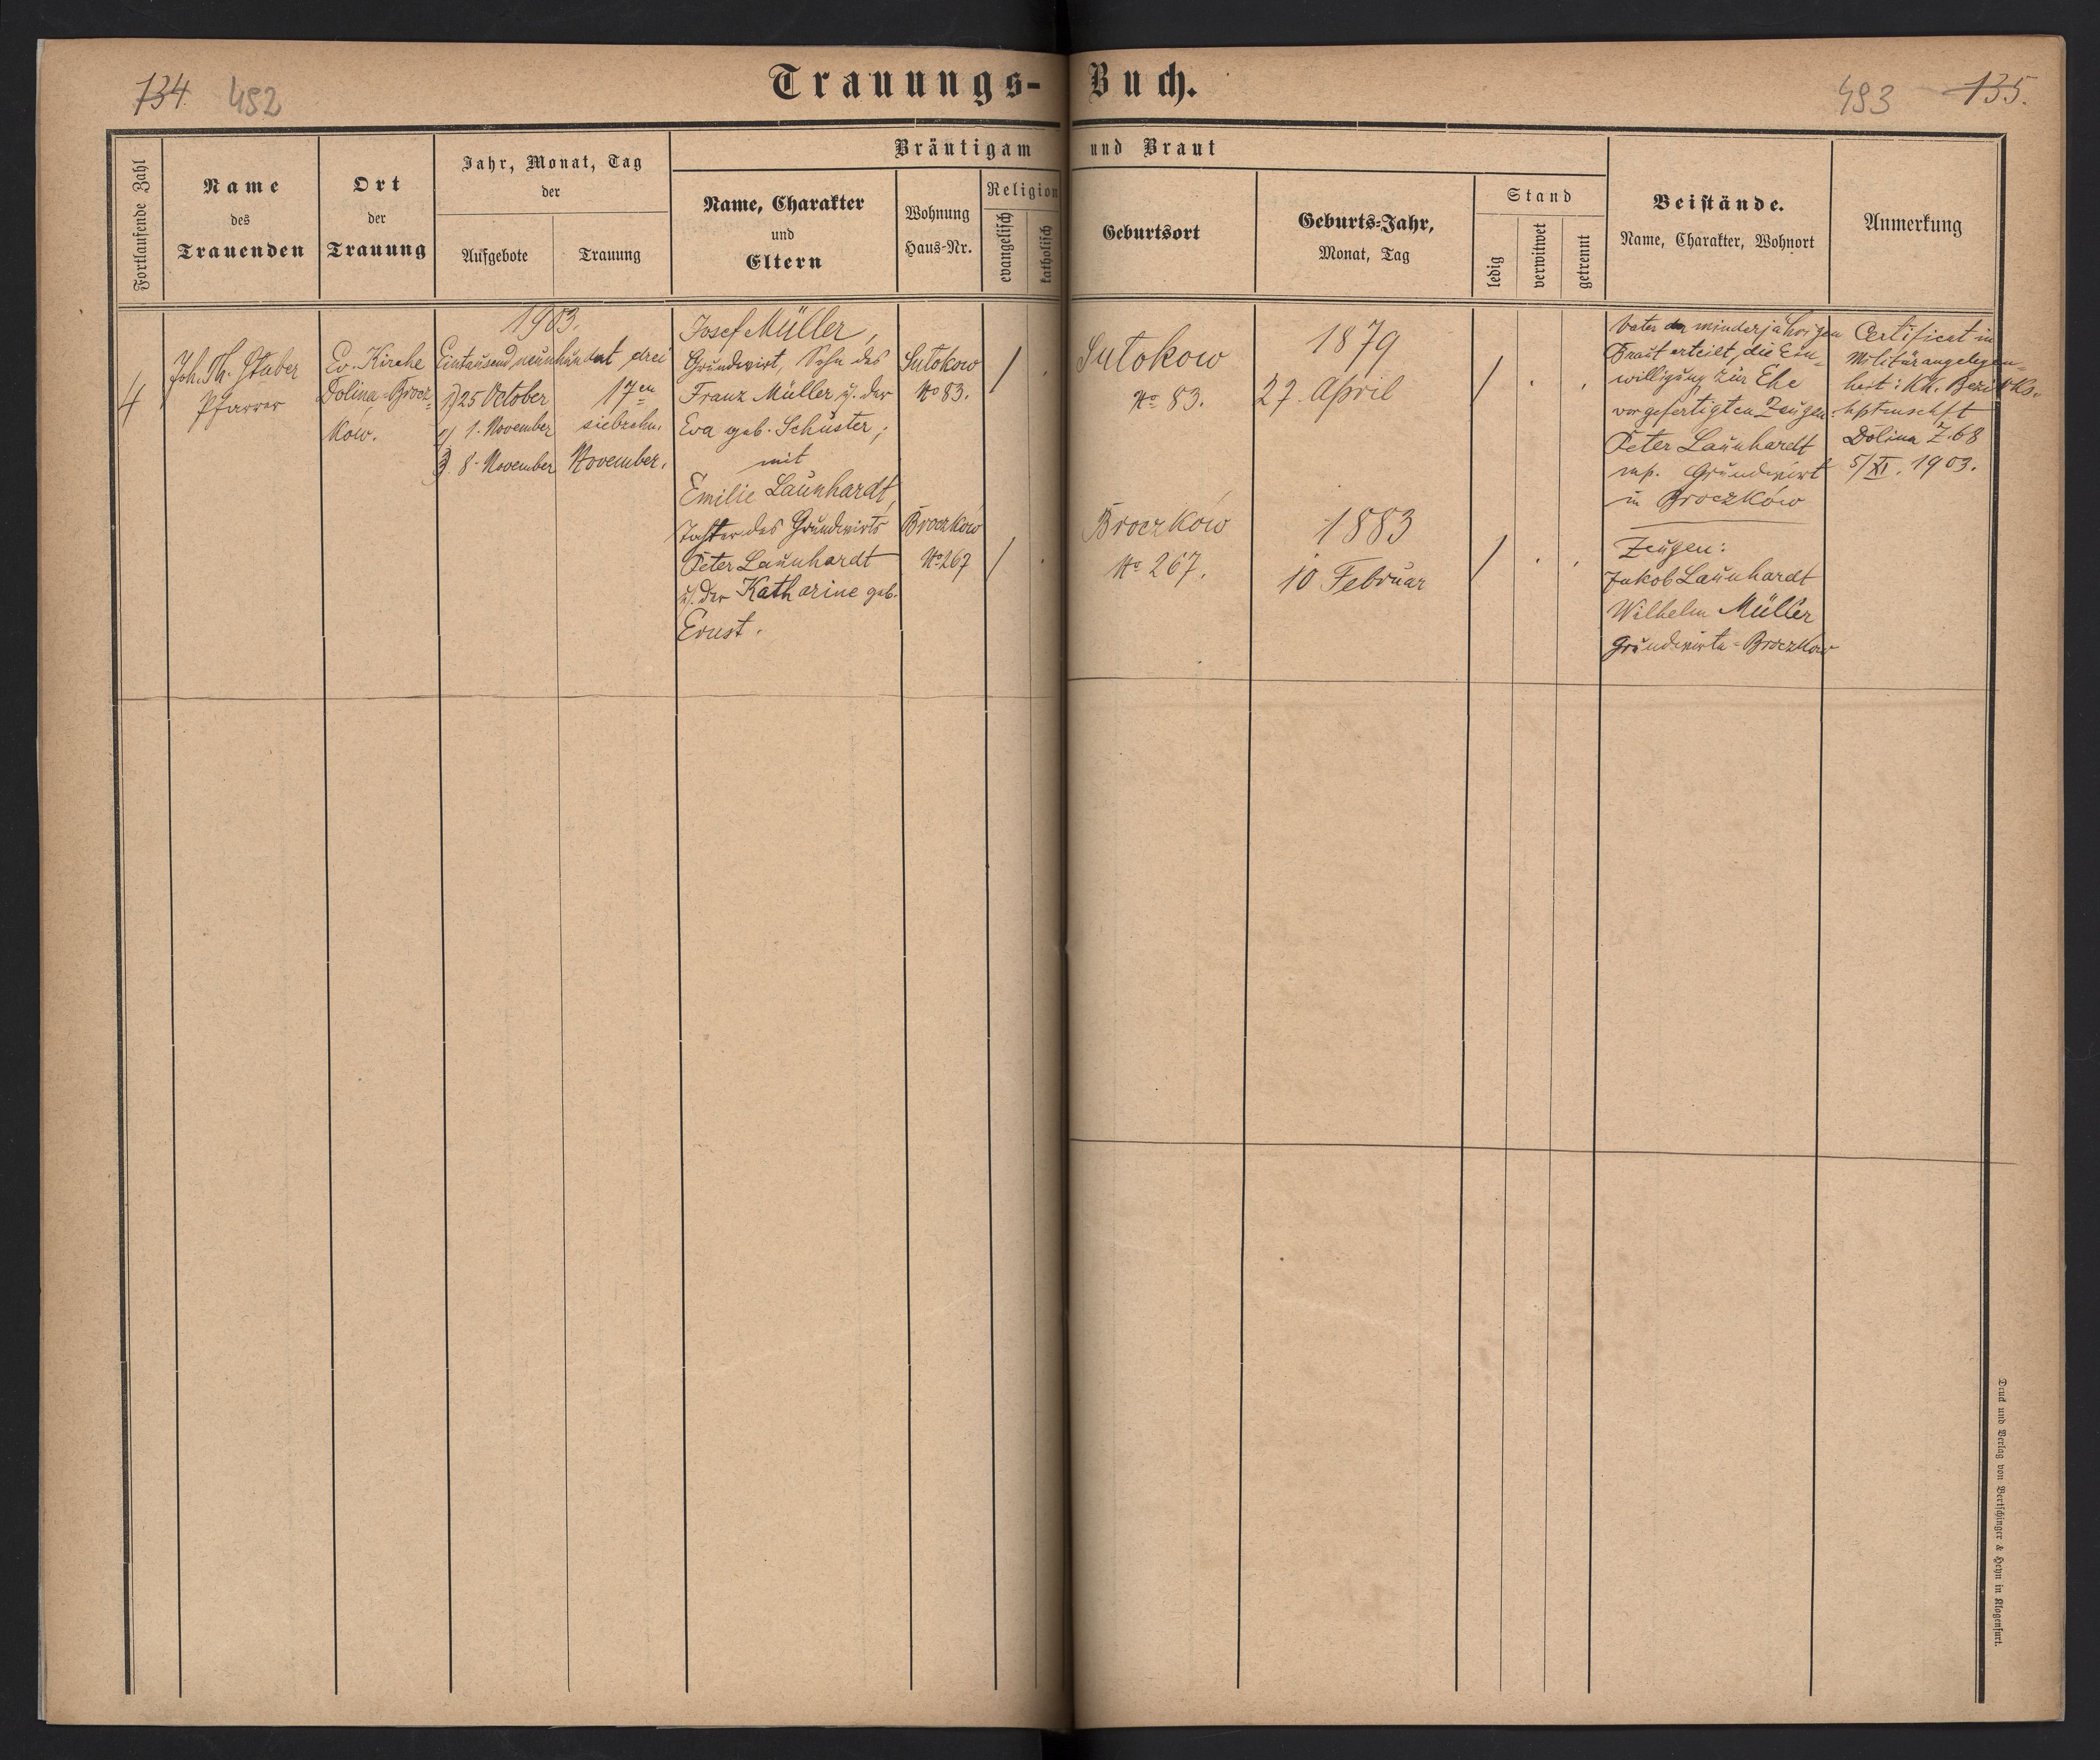 134. 452
Trauungs-Buch.
493 135.
Fortlaufende Zahl
Name
des
Trauenden
Ort
der
Trauung
Jahr, Monat, Tag
der
Aufgebote
Trauung
Bräutigam und Braut
Name, Charakter
und
Eltern
Wohnung
Haus-Nr.
Religion
evangelisch
katholisch
Geburtsort
Geburts-Jahr,
Monat, Tag
Stand
ledig
verwitwet
getrennt
Beistände.
Name, Charakter, Wohnort
Anmerkung
4
Joh. Th. Stuber
Pfarrer
Ev. Kirche
Dolina-Brocz-
kow.
1903.
Eintausend neunhundert drei
1) 25 October
2) 1. November
3. 8. November
17en
siebzehn.
November.
Josef Müller,
Grundwirt, Sohn des
Franz Müller u. der
Eva geb. Schuster;
mit
Emilie Launhardt,
Tochter des Grundwirts
Peter Launhardt
u. der Katharine geb.
Ernst.
Sutokow
No 83.
/ .
Broczków
No 267
/ .
Sutokow
No 83.
1879
27. April
/ . .
Broczków
No 267.
1883
10 Februar
/ . .
Vater der minderjährigen
Braut erteilt, die Ein-
willigung zur Ehe
vor gefertigten Zeugen:
Peter Launhardt
mp. Grundwirt
in Broczków
Zeugen:
Jakob Launhardt
Wilhelm Müller
Grundwirte - Broczkow
Certificat in
Militärangelegen-
heit: kk. Bezirks-
hptmschft
Dolina Z. 68
5/XI. 1903.
Druck und Verlag von Bertschinger & Heyn in Klagenfurt.